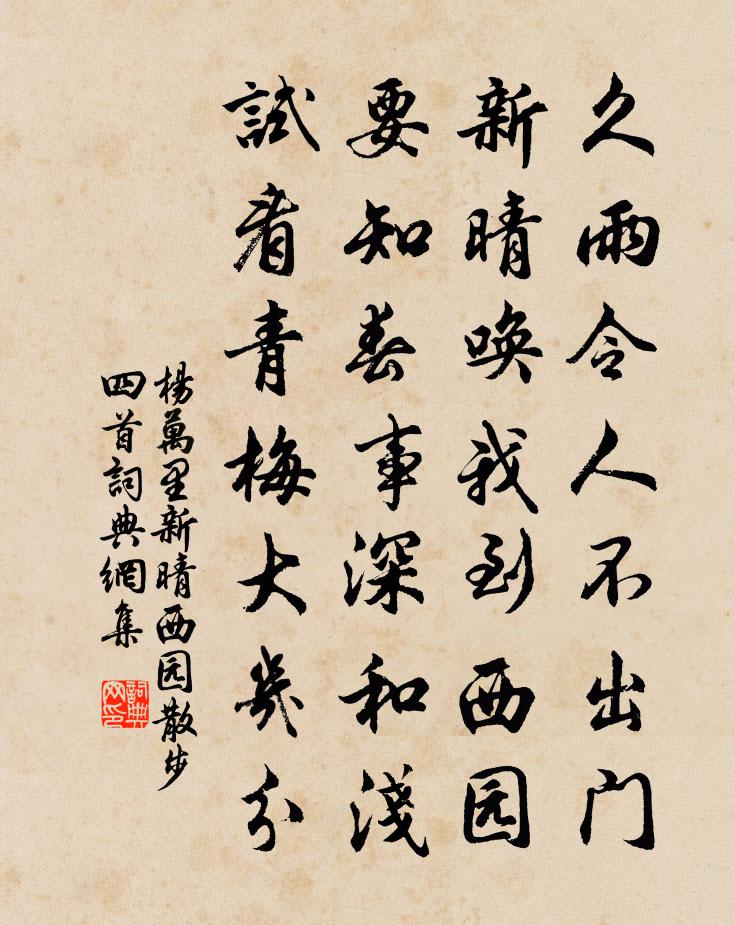 久雨令人不出门
新晴唤我到西园
要知春事深和淺
試看青梅大幾分
楊萬里新晴西园散步
四首詞典網集
詞典
网印